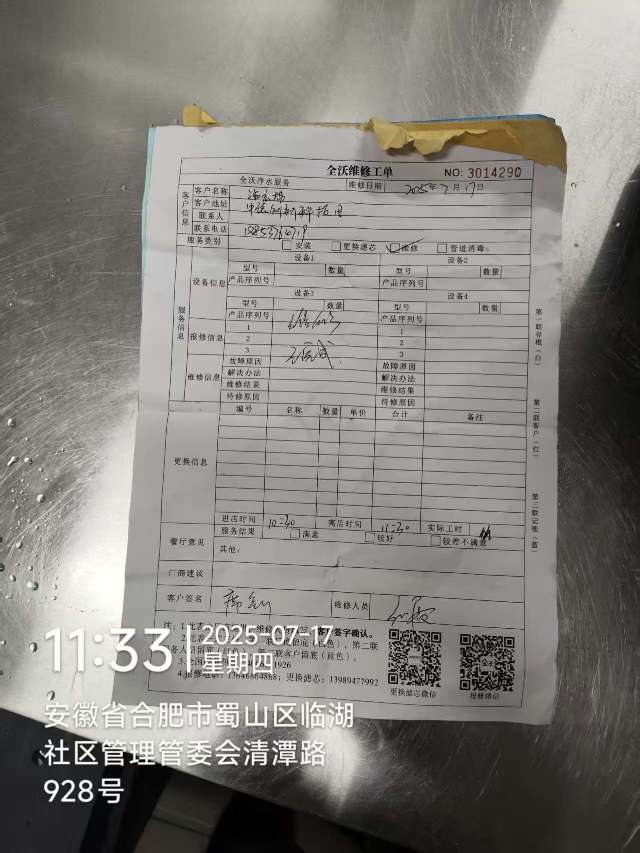 全沃维修工单
NO: 3014290
全沃净水服务 维修日期 2025年7月17日
客户信息
客户名称
客户地址
联系人
联系电话
服务类别 安装 更换滤芯 维修 管道消毒
服务信息
设备信息
设备1 设备2
型号 数量 型号 数量
产品序列号 产品序列号
设备3 设备4
型号 数量 型号 数量
产品序列号 产品序列号
报修信息
1 1
2 2
3 3
维修信息
故障原因 故障原因
解决办法 解决办法
维修结果 维修结果
待修原因 待修原因
更换信息
编号 名称 数量 单价 合计 备注
进店时间 10:30 离店时间 11:30 实际工时
餐厅意见
服务结果 满意 较好 较差不满意
其他:
厂商建议
客户签名 维修人员
签字确认。
4.报修电话: 13646864868; 更换滤芯: 13989477992
更换滤芯微信 报修微信
第一联存根(白)
第二联客户(红)
第三联记账(蓝)
11:33
2025-07-17
星期四
安徽省合肥市蜀山区临湖
社区管理管委会清潭路
928号